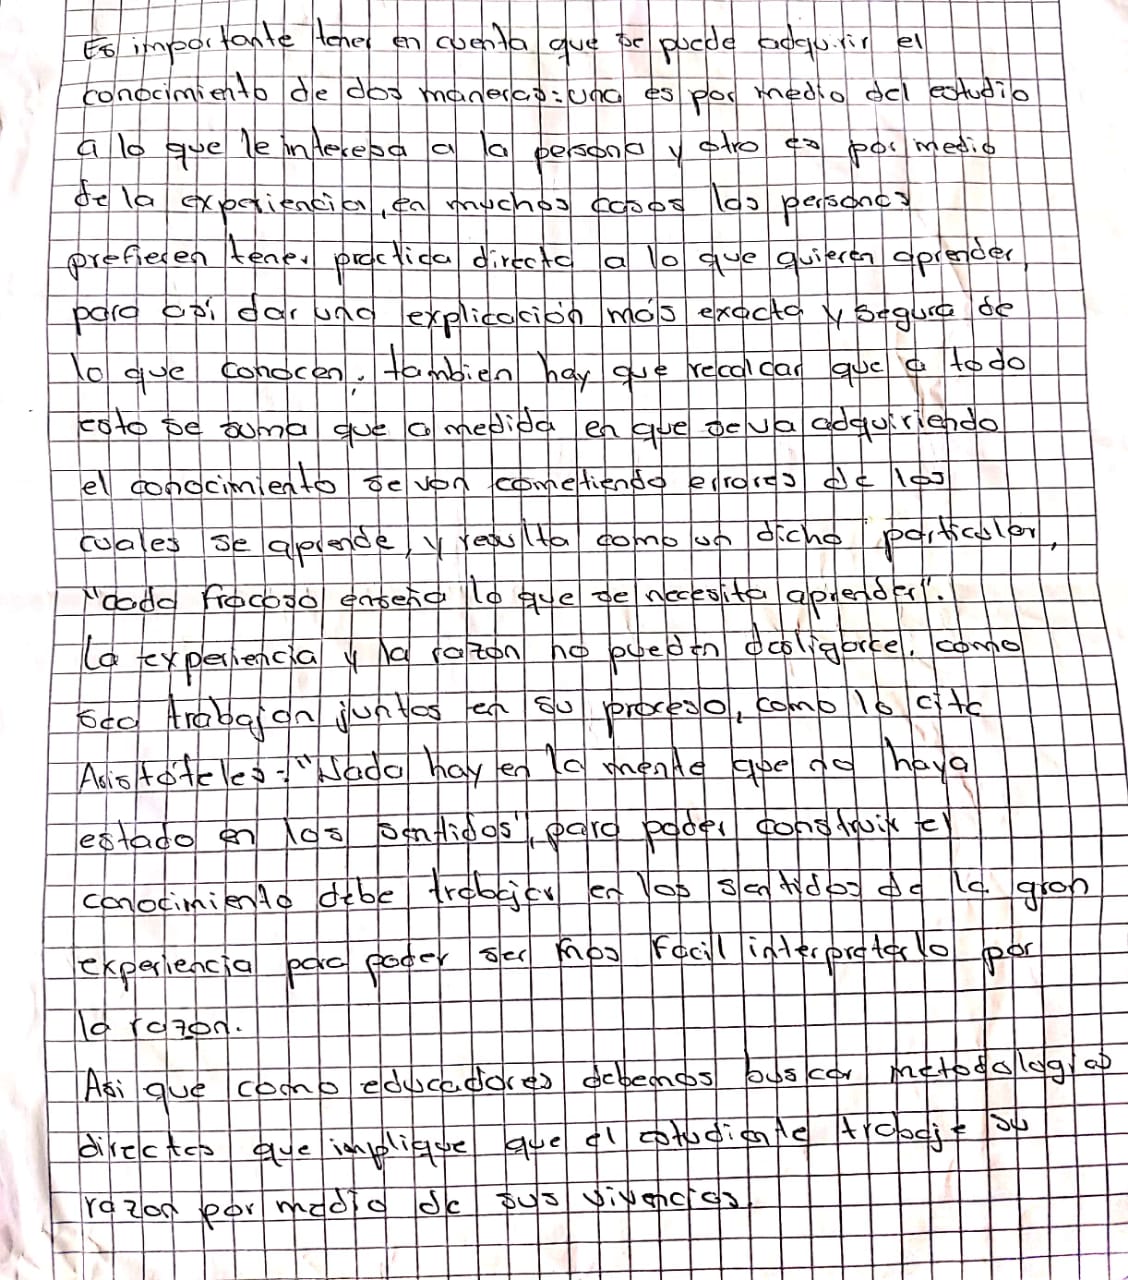 Es importante tener en cuenta que se puede adquirir el
conocimiento de dos maneras: una es por medio del estudio
a lo que le interesa a la persona y otro es por medio
de la experiencia, en muchos casos las personas
prefieren tener practica directa a lo que quieren aprender,
para así dar una explicación más exacta y segura de
lo que conocen, tambien hay que recalcar que a todo
esto se suma que a medida en que se va adquiriendo
el conocimiento se van cometiendo errores de los
cuales se aprende, y resulta como un dicho particular,
"cada fracaso enseña lo que se necesita aprender".
La experiencia y la razon no pueden desligarce, como
sea trabajan juntos en su proceso, como lo cita
Aristóteles: "Nada hay en la mente que no haya
estado en los sentidos", para poder construir el
conocimiento debe trabajar en los sentidos de la gran
experiencia para poder ser mas facil interpretarlo por
la razon.
Asi que como educadores debemos buscar metodologias
directas que implique que el estudiante trabaje su
razon por medio de sus vivencias.